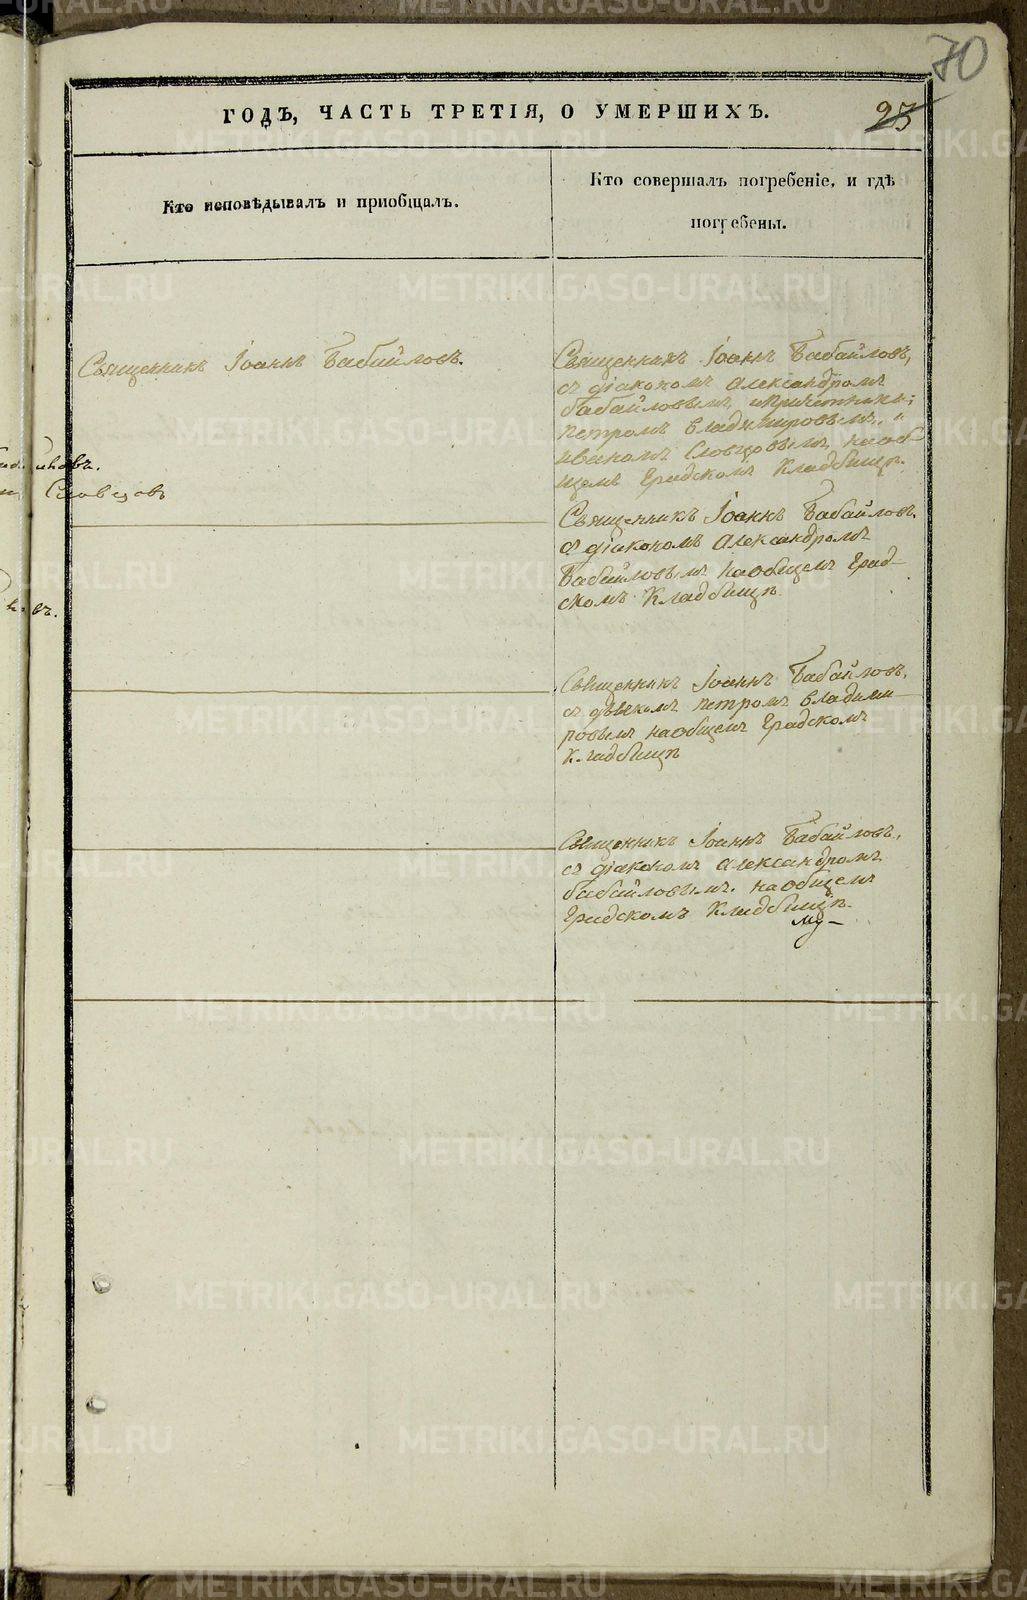 70
ГОДЪ, ЧАСТЬ ТРЕТІЯ, О УМЕРШИХЪ.
23
Кто исповѣдывалъ и пріобщалъ.
Кто совершалъ погребеніе, и гдѣ
погребены.
Священникъ Іоаннъ Бабайловъ.
Священникъ Іоаннъ Бабайловъ,
съ діакономъ Александромъ
Бабайловымъ, и причетники:
Петромъ Владимировымъ, и
Иваномъ Словцовымъ, на об
щемъ Градскомъ Кладбищѣ.
Словцовъ
Священникъ Іоаннъ Бабайловъ,
съ діакономъ Александромъ
Бабайловымъ на общемъ Град-
скомъ Кладбищѣ.
Священникъ Іоаннъ Бабайловъ,
съ дьячкомъ Петромъ Владими
ровымъ на общемъ Градскомъ
Кладбищѣ
Священникъ Іоаннъ Бабайловъ,
съ діакономъ Александромъ
Бабайловымъ. на общемъ
Градскомъ Кладбищѣ.
METRIKI.GASO-URAL.RU